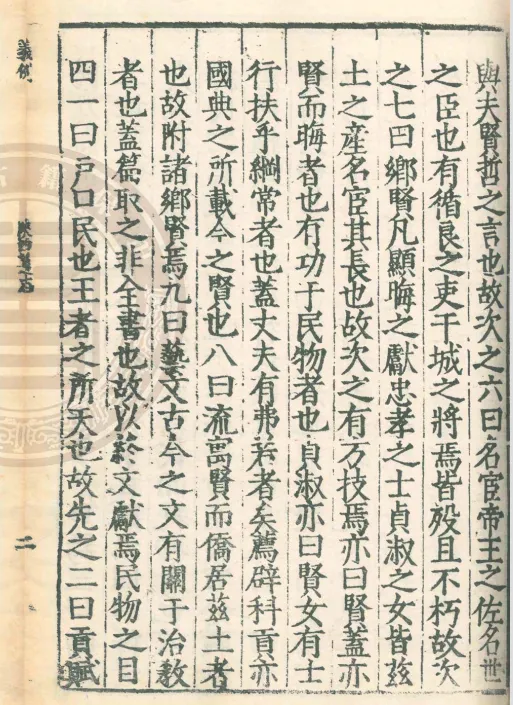 與夫賢哲之言也故次之六曰名宦帝王之佐名世
之臣也有循良之吏干城之將焉皆殁且不朽故次
之七曰鄉賢凡顯晦之獻忠孝之士貞淑之女皆兹
土之産名宦其長也故次之有方技焉亦曰賢蓋亦
賢而晦者也有功于民物者也貞淑亦曰賢女有士
行扶乎綱常者也蓋丈夫有弗若者矣薦辟科貢亦
國典之所載今之賢也八曰流寓賢而僑居兹土者
也故附諸鄉賢焉九曰藝文古今之文有關于治教
者也蓋節取之非全書也故以終文獻焉民物之目
四一曰戸口民也王者之所天也故先之二曰貢賦
義例
二